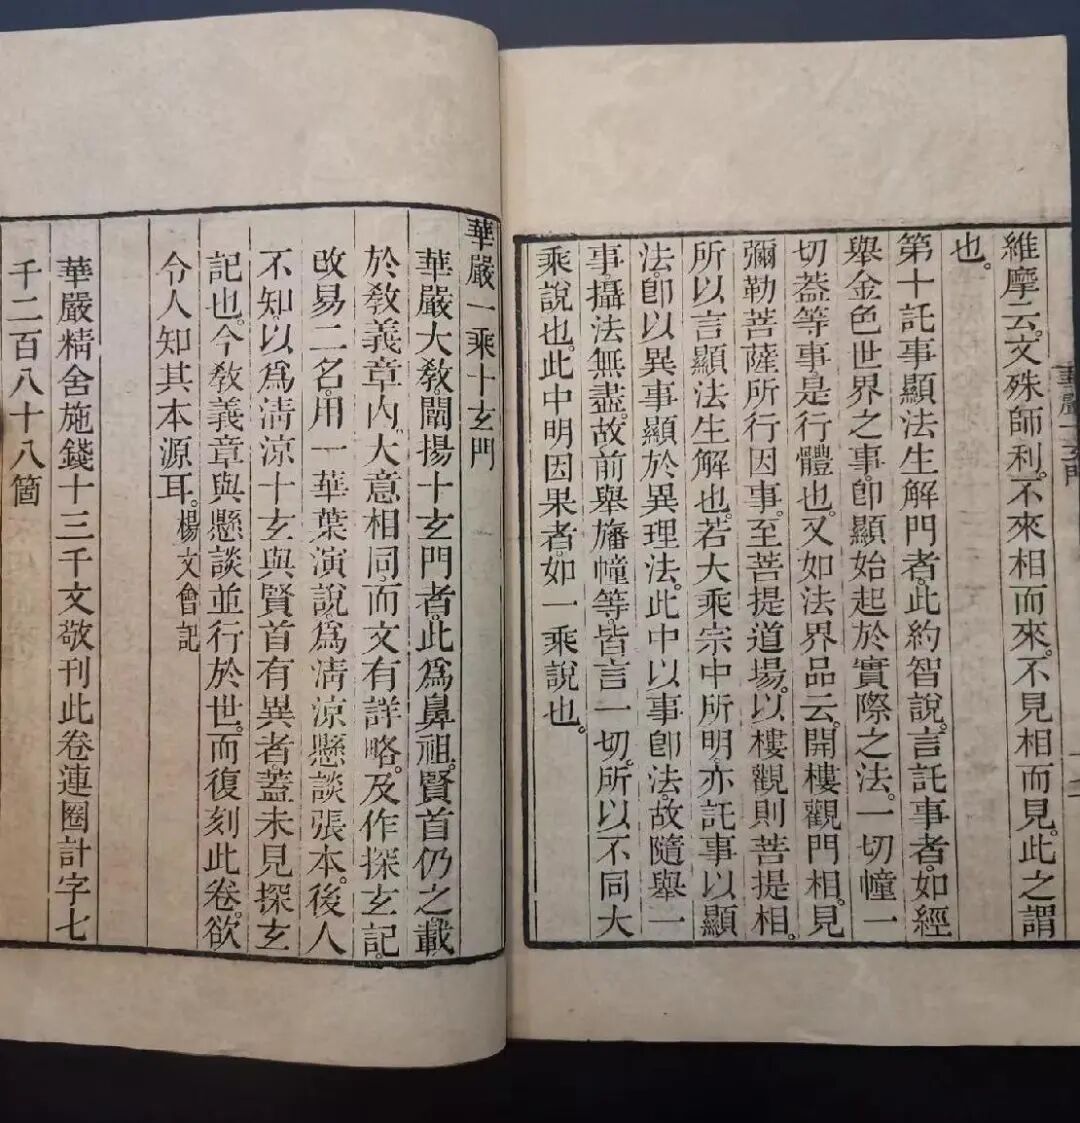 維摩云。文殊師利。不來相而來。不見相而見。此之謂
也。
第十託事顯法生解門者。此約智說。言託事者。如經
舉金色世界之事。卽顯始起於實際之法。一切幢一
切葢等事。是行體也。又如法界品云。開樓觀門相。見
彌勒菩薩所行因事。至菩提道場。以樓觀則菩提相。
所以言顯法生解也。若大乘宗中所明。亦託事以顯
法。卽以異事顯於異理法。此中以事卽法。故隨舉一
事。攝法無盡。故前舉旛幢等。皆言一切。所以不同大
乘說也。此中明因果者。如一乘說也。
華嚴一乘十玄門
華嚴大敎。闡揚十玄門者。此爲鼻祖。賢首仍之。載
於敎義章內。大意相同。而文有詳略。及作探玄記。
改易二名。用一華葉演說。爲淸涼懸談張本。後人
不知。以爲淸涼十玄與賢首有異者。蓋未見探玄
記也。今敎義章與懸談並行於世。而復刻此卷。欲
令人知其本源耳。楊文會記
華嚴精舍施錢十三千文敬刊此卷連圈計字七
千二百八十八箇